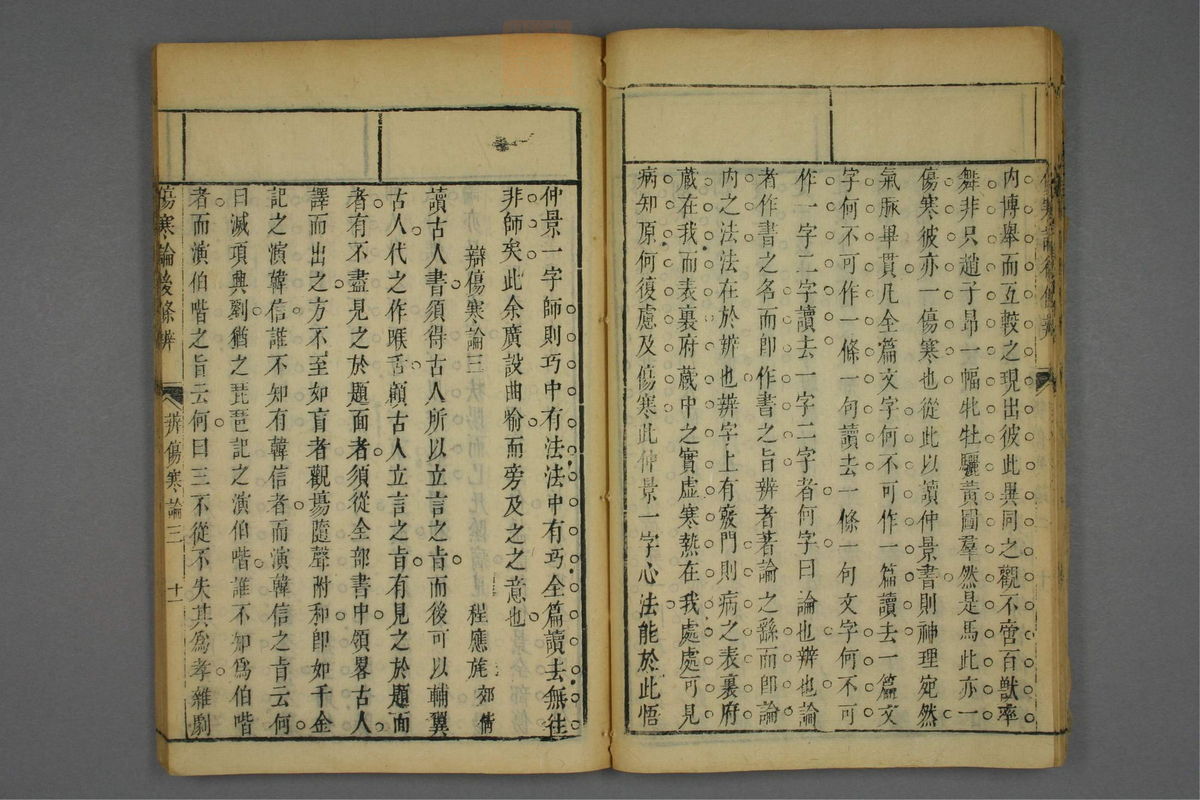 内博舉而互較之現出彼此異同之觀不啻百獸率
舞非只趙子昂一幅牝牡驪黃圖羣然是馬此亦一
傷寒彼亦一傷寒也從此以讀仲景書則神理宛然
氣脉畢貫凡全篇文字何不可作一篇讀去一篇文
字何不可作一條一句讀去一條一句文字何不可
作一字二字讀去一字二字者何字曰論也辨也論
者作書之名而卽作書之旨辨者著論之繇而卽論
内之法法在於辨也辨字上有竅門則病之表裏府
藏在我而表裏府藏中之實虛寒熱在我處處可見
病知原何復慮及傷寒此仲景一字心法能於此悟
仲景一字師則巧中有法法中有巧全篇讀去無往
非師矣此余廣設曲喻而旁及之之意也
辯傷寒論三
程應旄 郊倩
讀古人書須得古人所以立言之旨而後可以輔翼
古人代之作喉舌顧古人立言之旨有見之於題面
者有不盡見之於題面者須從全部書中領畧古人
譯而出之方不至如盲者觀塲隨聲附和卽如千金
記之演韓信誰不知有韓信者而演韓信之旨云何
曰滅項興劉猶之琵琶記之演伯喈誰不知爲伯喈
者而演伯喈之旨云何曰三不從不失其爲孝雜劇
傷寒論後條辨
辨傷寒論三
十一